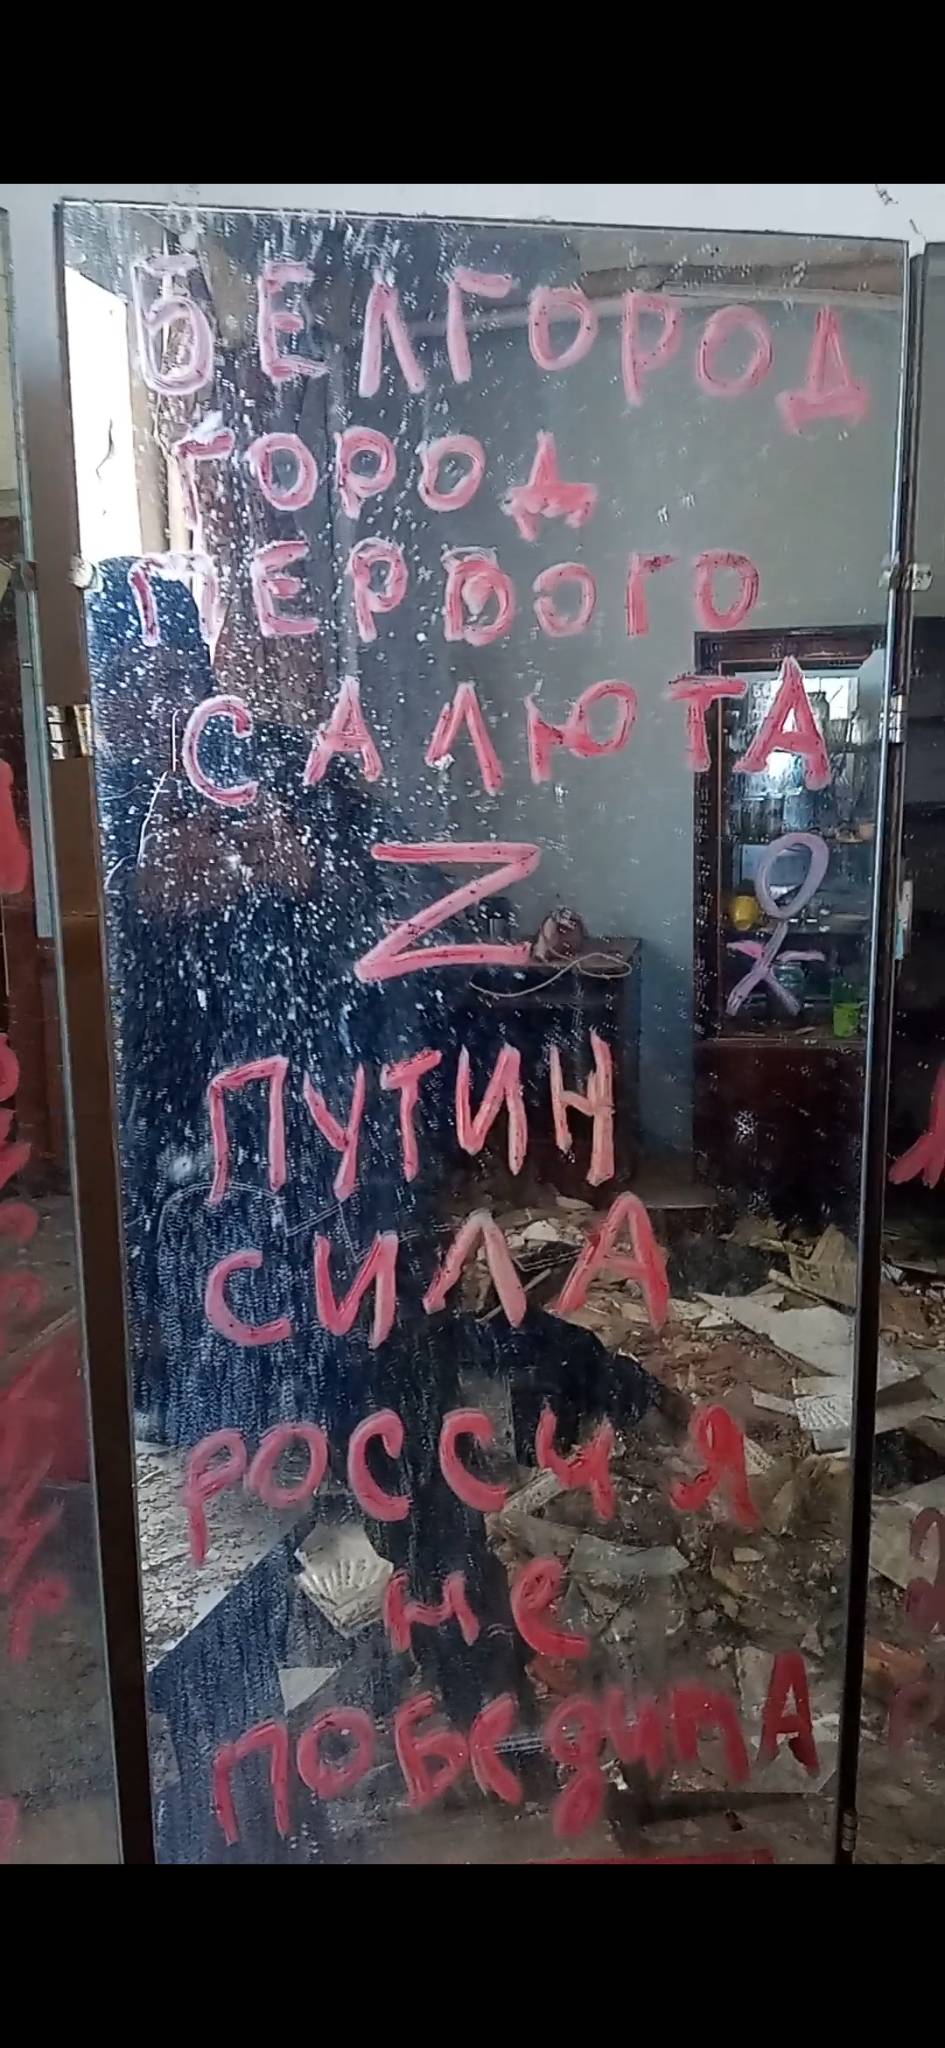 БЕЛГОРОД
ГОРОД
ПЕРВОГО
САЛЮТА
Z
ПУТИН
СИЛА
РОССИЯ
не
ПОБЕдитА